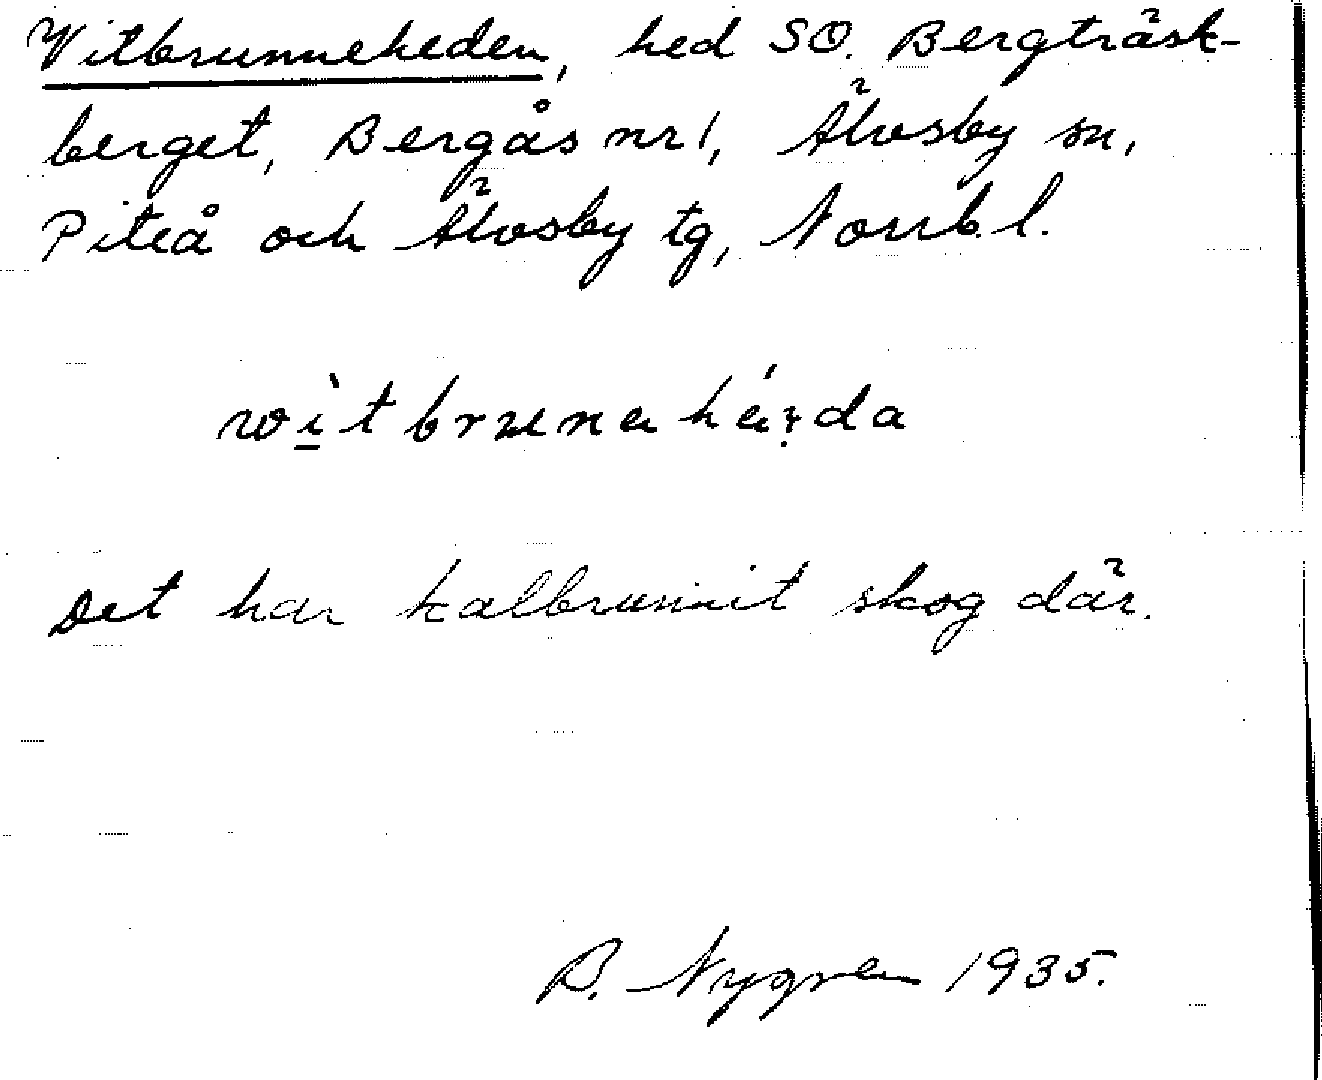 Vitbrunneheden, hed SO. Bergträsk-
berget, Bergås nr 1, Älvsby sn,
Piteå och Älvsby tg, Norrb. l.
Det har kalbrunnit skog där.
B. Nygren 1935.